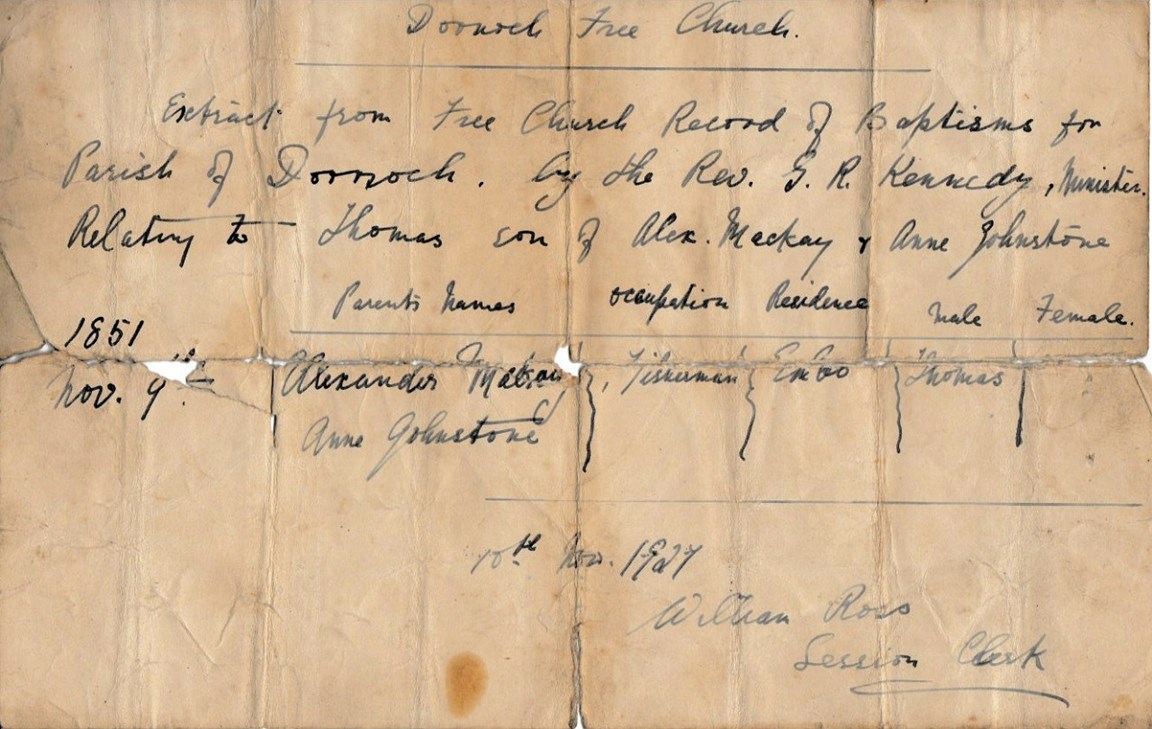 Dornoch Free Church.
Extract from Free Church Record of Baptisms for
Parish of Dornoch. by the Rev. G. R. Kennedy, Minister.
Relating to Thomas son of Alex. Mackay & Anne Johnstone
Parents Names occupation Residence Male Female.
1851
Nov. 9th Alexander Mackay, Fisherman Embo Thomas
Anne Johnstone
10th Nov. 1927
William Ross
Session Clerk